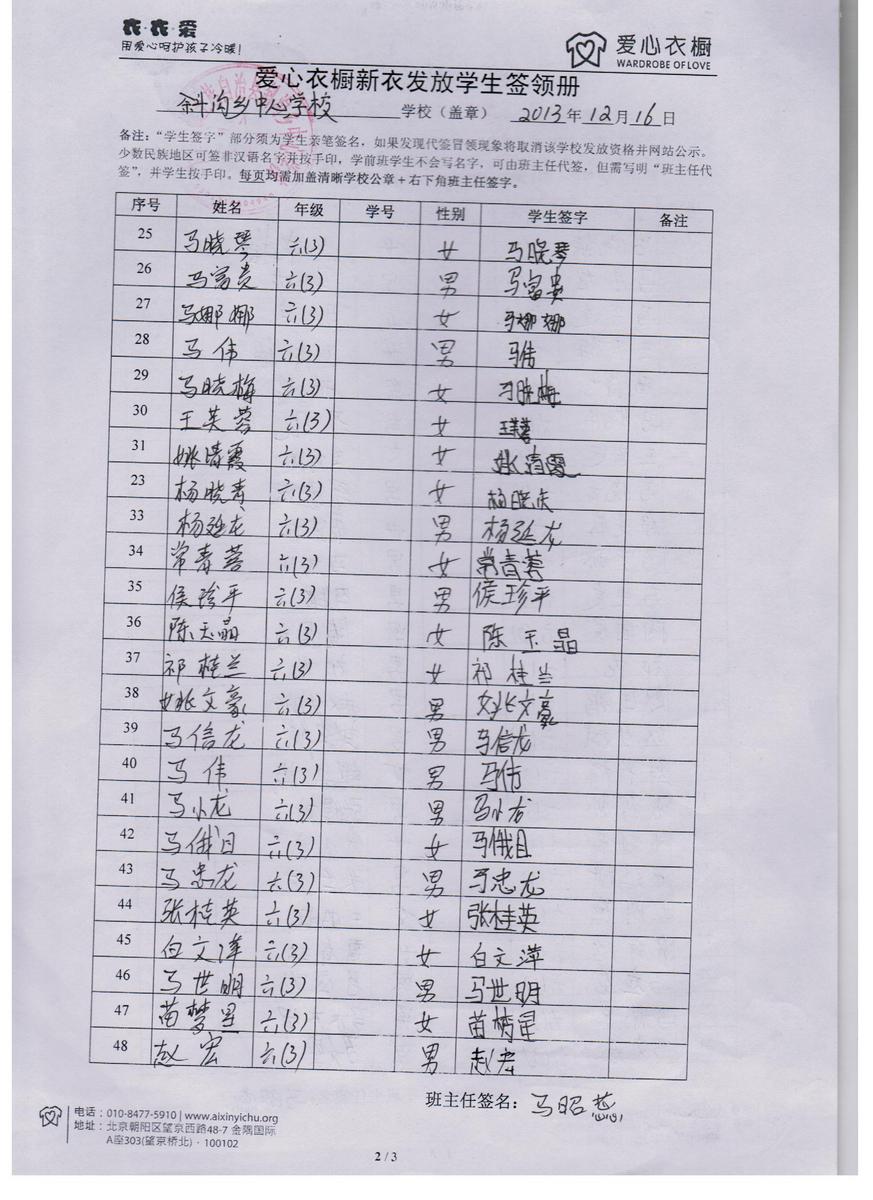 衣·衣·爱
用爱心呵护孩子冷暖！
爱心衣橱
WARDROBE OF LOVE
爱心衣橱新衣发放学生签领册
斜沟乡中心学校 学校（盖章） 2013年12月16日
备注：“学生签字”部分须为学生亲笔签名，如果发现代签冒领现象将取消该学校发放资格并网站公示。
少数民族地区可签非汉语名字并按手印，学前班学生不会写名字，可由班主任代签，但需写明“班主任代
签”，并学生按手印。每页均需加盖清晰学校公章+右下角班主任签字。
序号 姓名 年级 学号 性别 学生签字 备注
25 马晓琴 六(3) 女 马晓琴
26 马富贵 六(3) 男 马富贵
27 马娜娜 六(3) 女 马娜娜
28 马伟 六(3) 男 马伟
29 马晓梅 六(3) 女 马晓梅
30 王芙蓉 六(3) 女 王芙蓉
31 姚清霞 六(3) 女 姚清霞
23 杨晓青 六(3) 女 杨晓
33 杨延龙 六(3) 男 杨延龙
34 常青蓉 六(3) 女 常青蓉
35 侯珍平 六(3) 男 侯珍平
36 陈玉晶 六(3) 女 陈玉晶
37 祁桂兰 六(3) 女 祁桂兰
38 姚文豪 六(3) 男 姚文豪
39 马信龙 六(3) 男 马信龙
40 马伟 六(3) 男 马伟
41 马小龙 六(3) 男 马小龙
42 马俄日 六(3) 女 马俄目
43 马忠龙 六(3) 男 马忠龙
44 张桂英 六(3) 女 张桂英
45 白文萍 六(3) 女 白文萍
46 马世明 六(3) 男 马世明
47 苗梦星 六(3) 女 苗梦星
48 赵宏 六(3) 男 赵宏
班主任签名：马昭蕊
电话：010-8477-5910 | www.aixinyichu.org
地址：北京朝阳区望京西路48-7 金隅国际
A座303(望京桥北)·100102
2 / 3